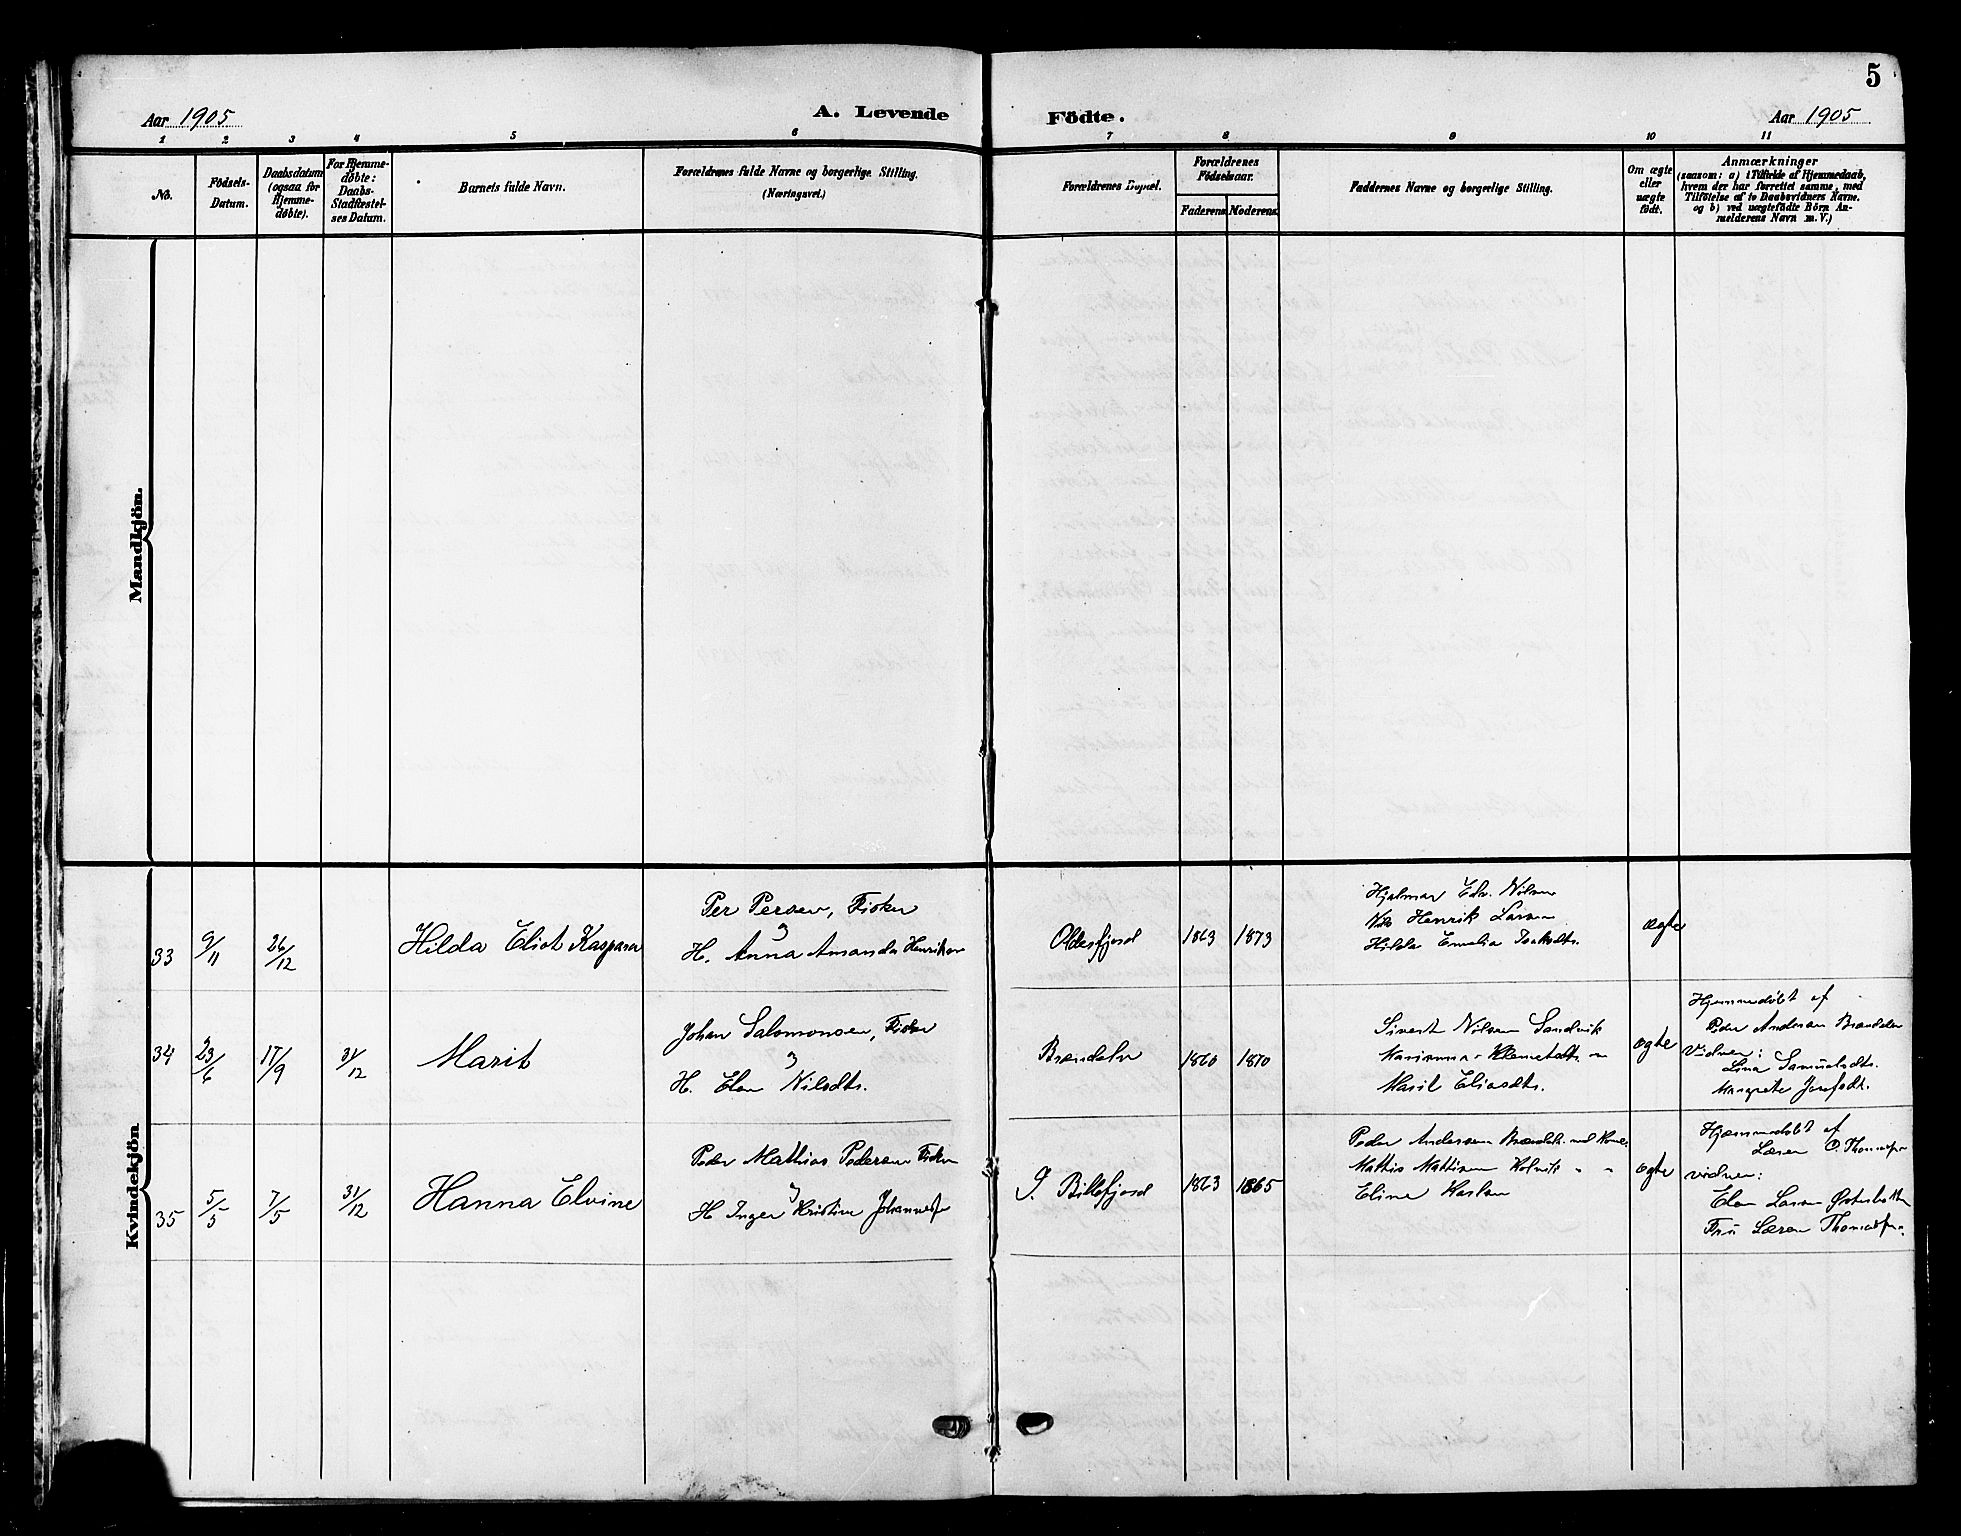 5
Aar 1905
A. Levende
Födte.
Aar 1905
1 2 3 4 5 6 7 8 9 10 11
No.
Födsels-
Datum.
Daabsdatum
(ogsaa for
Hjemme-
döbte).
For Hjemme-
döbte:
Daabs-
Stadfæstel-
ses Datum.
Barnets fulde Navn.
Forældrenes fulde Navne og borgerlige Stilling.
(Næringsvei.)
Forældrenes Bopæl.
Forældrenes
Födselsaar.
Faderens.
Moderens.
Faddernes Navne og borgerlige Stilling.
Om ægte
eller
uægte
födt.
Anmærkninger
(saasom: a) i Tilfælde af Hjemmedaab,
hvem der har forrettet samme, med
Tilföielse af to Daabsvidners Navne.
og b) ved uægtefödte Börn An-
melderens Navn m. V.)
Mandkjön.
Kvindekjön
33
9/11
26/12
Hilda Eliot Kaspara
Per Persen, Fisker
H. Anna Amanda Henriksen
Oldesfjord
1863
1873
Hjalmar Edv. Nilsen
Henrik Larsen
Hilda Emelia Isaksdtr.
ægte
34
23/6
17/9
31/12
Marit
Johan Salomonsen, Fisker
H. Elen Nilsdtr.
Brændelv
1860
1870
Sivert Nilsen Sandvik
Marianna Klemetsdtr. "
Marit Eliasdtr.
ægte
Hjemmedøbt af
Peder Andersen Brændelv
Vidner:
Lina Samuelsdtr.
Margrete Josefsdt.
35
5/5
7/5
31/12
Hanna Elvine
Peder Mathias Pedersen Fisker
H Inger Kristine Johannesdr
I. Billefjord
1863
1865
Peder Andersen Brændelv med Kone
Mattis Mattisen Kolvik " "
Eline Karlsen
ægte
Hjemmedøbt af
Lærer O. Thomassen
vidner:
Elen Larsen Østerbotten
Fru Lærer Thomassen